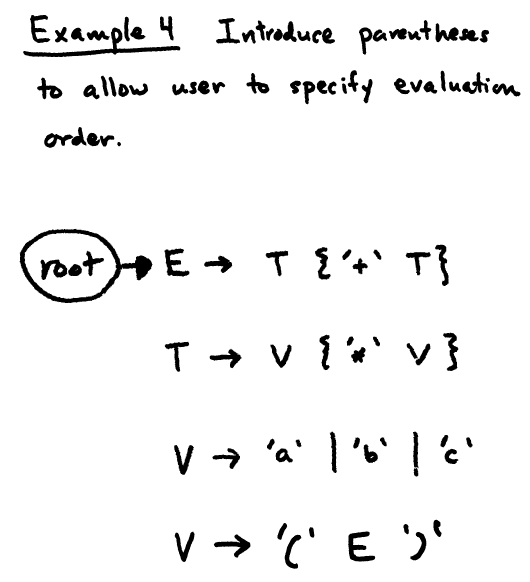 Example 4 Introduce parentheses
to allow user to specify evaluation
order.
root → E → T { '+' T }
T → V { '*' V }
V → 'a' | 'b' | 'c'
V → '(' E ')'